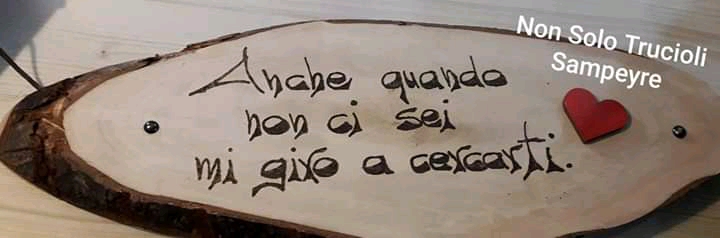 Non Solo Trucioli
Sampeyre
Anche quando
non ci sei
mi giro a cercarti.